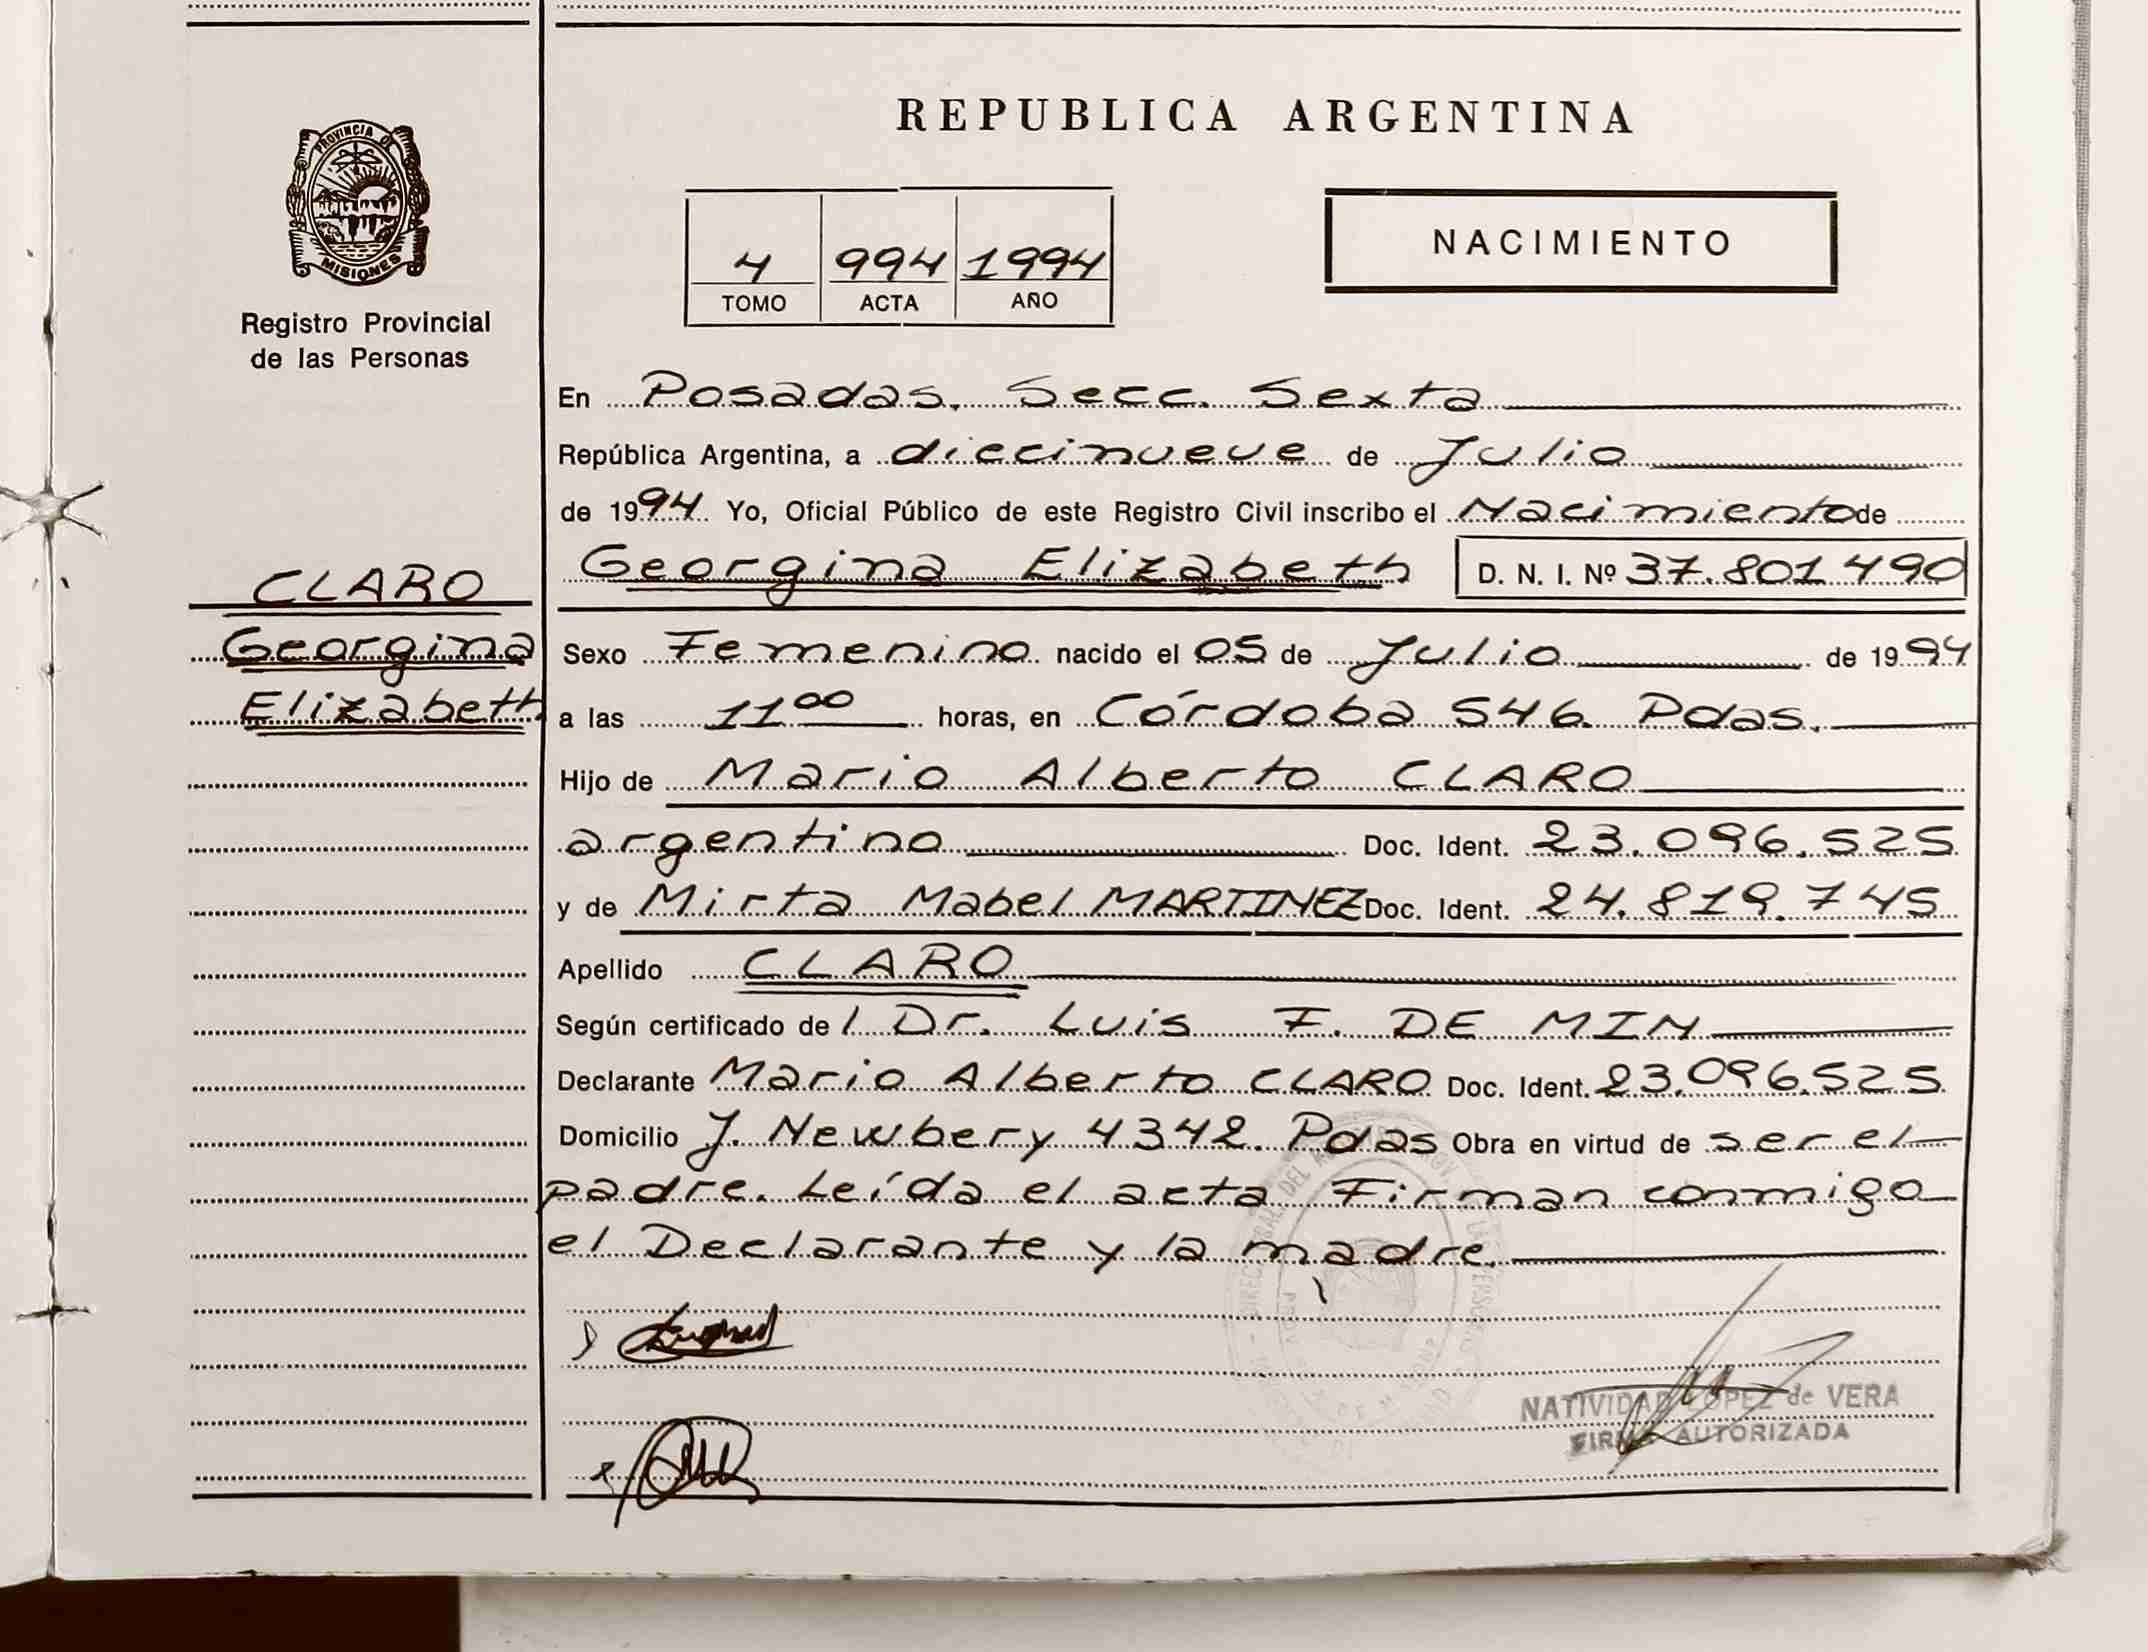 REPUBLICA ARGENTINA
PROVINCIA DE
MISIONES
Registro Provincial
de las Personas
NACIMIENTO
4 994 1994
TOMO ACTA AÑO
En Posadas. Secc. Sexta
República Argentina, a diecinueve de Julio
de 1994 Yo, Oficial Público de este Registro Civil inscribo el Nacimiento de
Georgina Elizabeth D. N. I. Nº 37.801.490
CLARO
Georgina
Elizabeth
Sexo Femenino nacido el 05 de Julio de 1994
a las 11 00 horas, en Córdoba 546. Pdas.
Hijo de Mario Alberto CLARO
argentino Doc. Ident. 23.096.525
y de Mirta Mabel MARTINEZ Doc. Ident. 24.819.745
Apellido CLARO
Según certificado de l Dr. Luis F. DE MIN
Declarante Mario Alberto CLARO Doc. Ident. 23.096.525
Domicilio J. Newbery 4342. Pdas Obra en virtud de ser el
padre. Leída el acta Firman conmigo
el Declarante y la madre.
NATIVIDAD LOPEZ de VERA
FIRMA AUTORIZADA